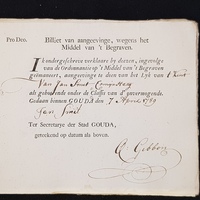 Pro Deo.
Billiet van aangeevinge, wegens het
Middel van 't Begraven.
Ik ondergeschreve verklaare by deezen, ingevolge
van de Ordonnantie op 't Middel van 't Begraven
geëmaneert, aangeevinge te dien van het Lyk van 1 Kind
Van Jan
als gehoorende onder de Classis van d'onvermogende.
Gedaan binnen GOUDA den 7 April 1789
Jan
Ter Secretarye der Stad GOUDA,
gereekend op datum als boven.